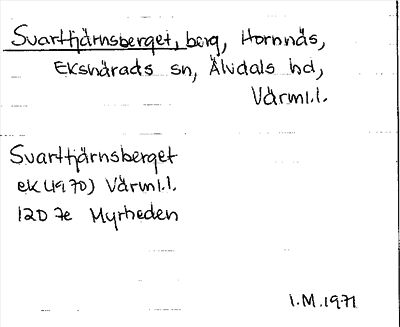 Svarttjärnsberget, berg, Hornnäs,
Ekshärads sn, Älvdals hd,
Värml.l.
Svarttjärnsberget
ek (1970) Värml.l.
12D 7e Myrheden
I.M. 1971